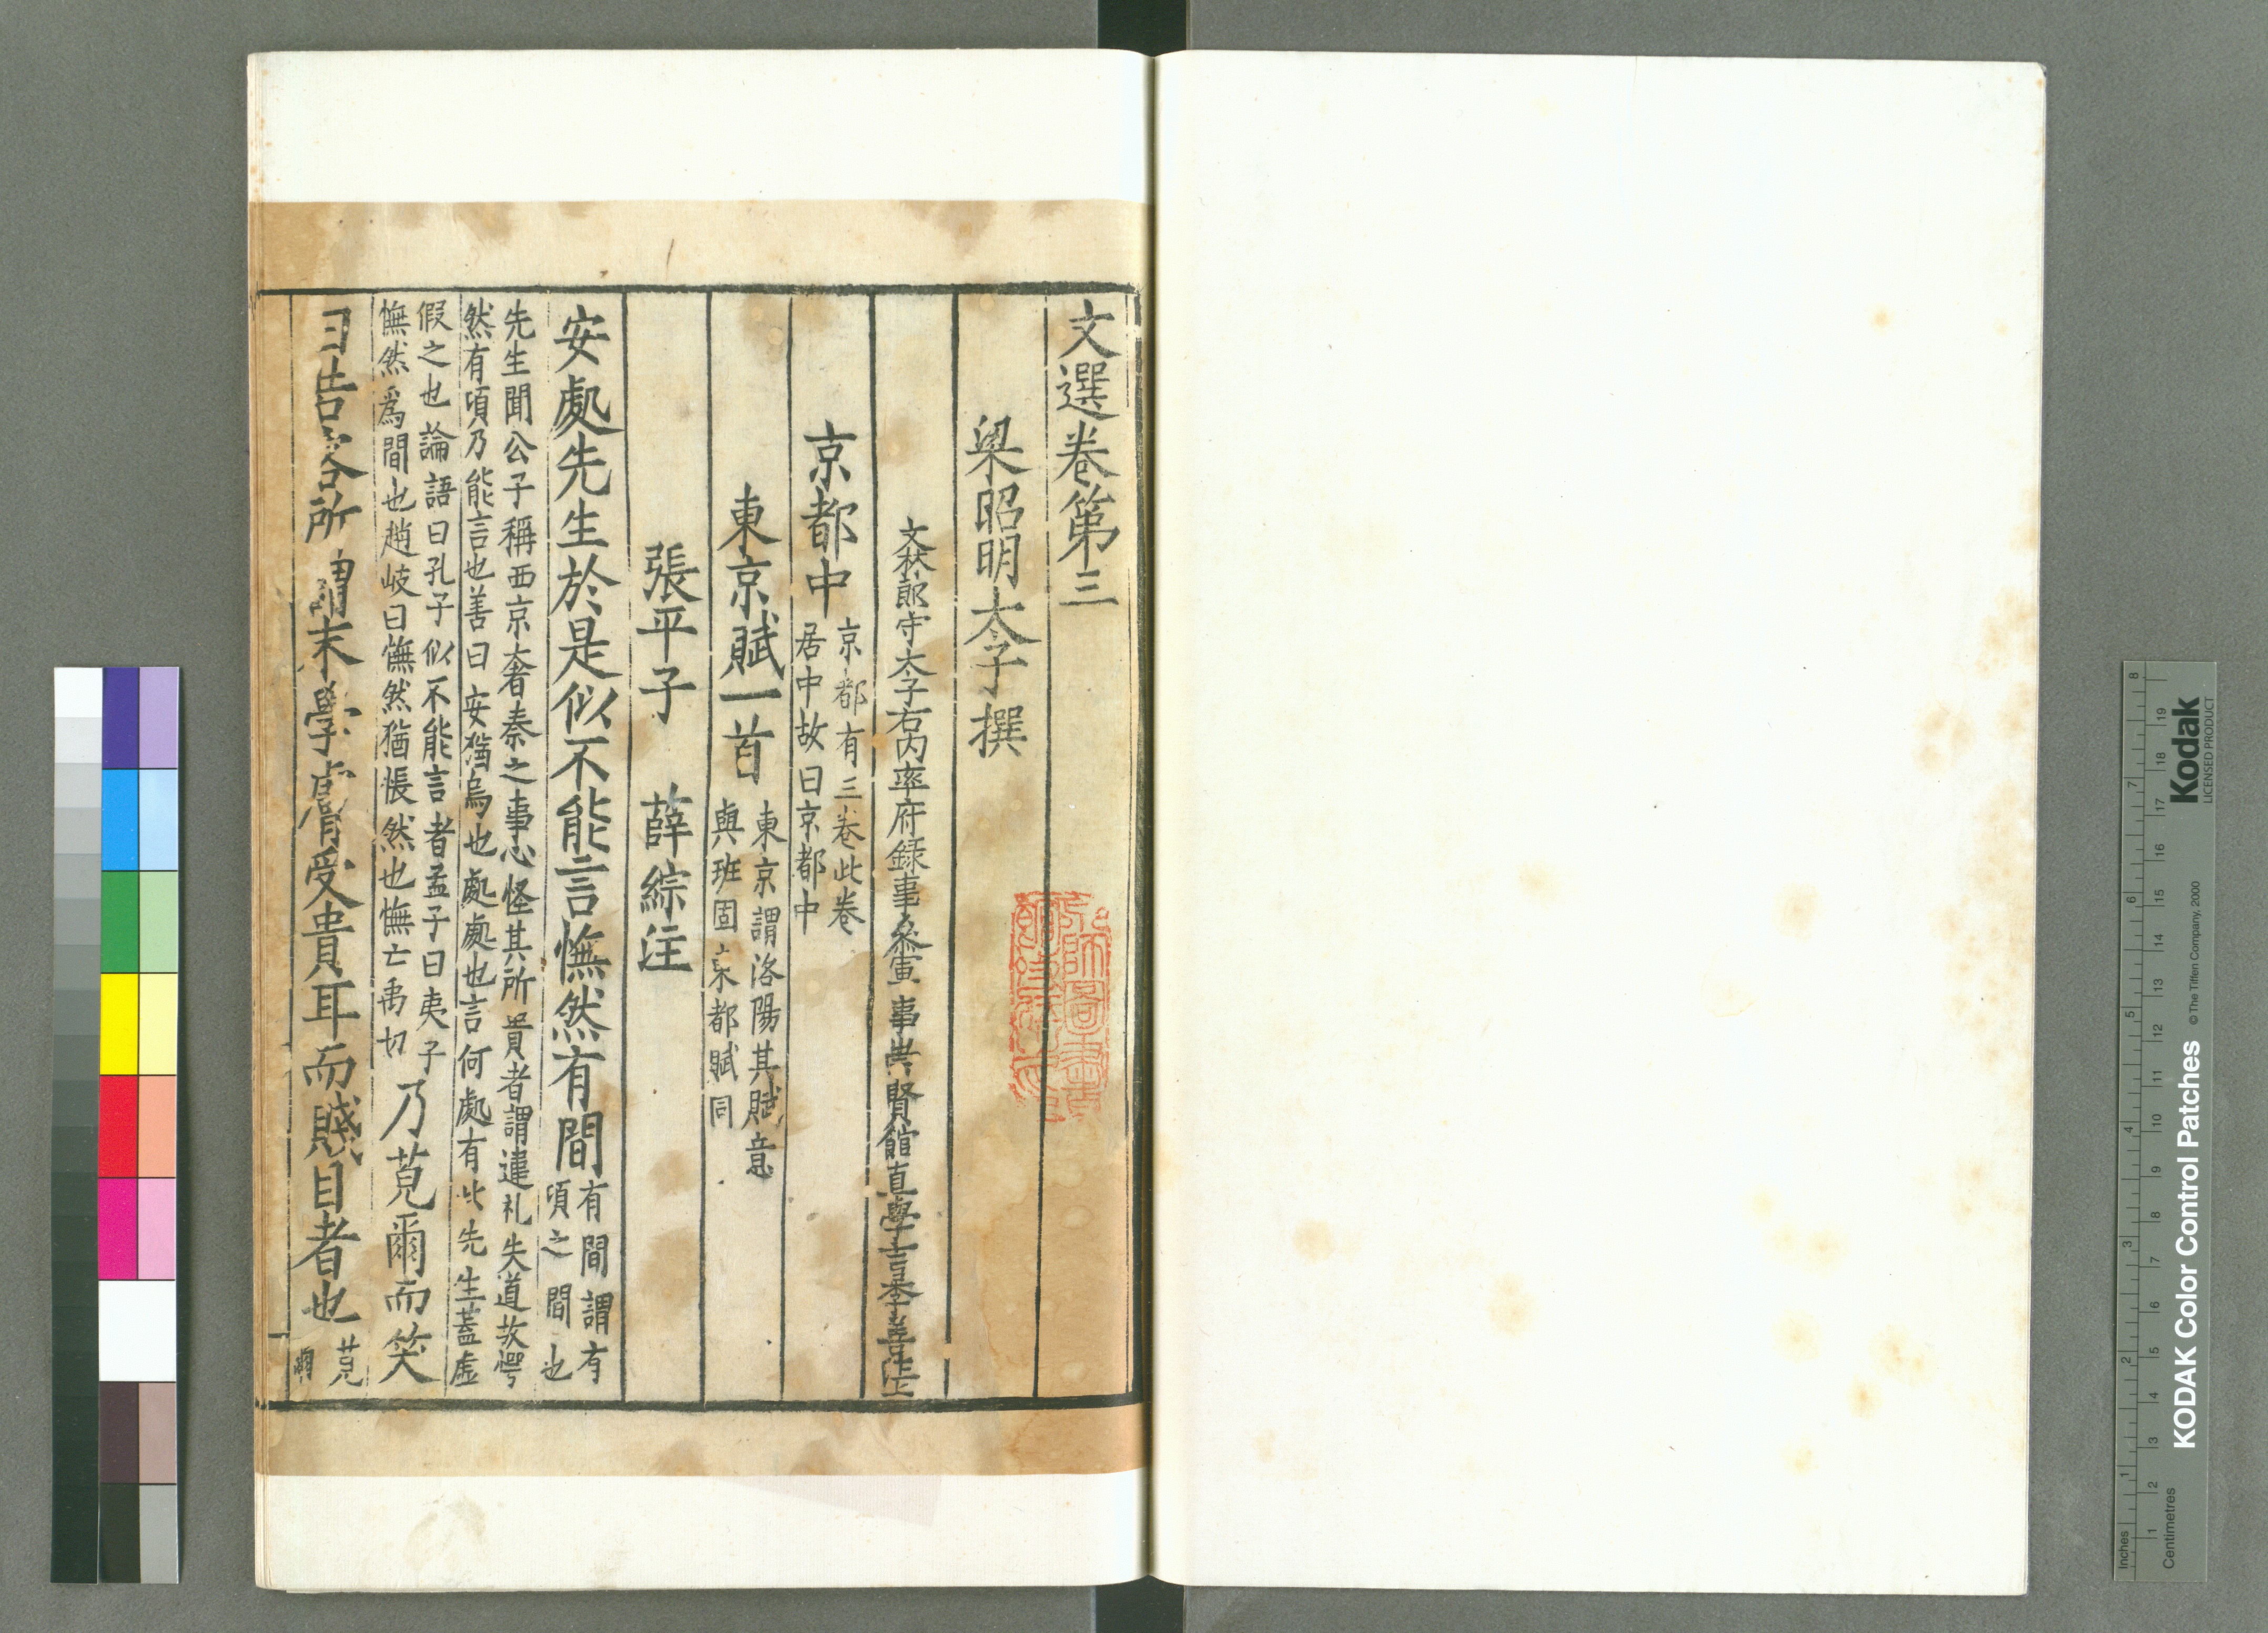 文選卷第三
梁昭明太子撰
文林郎守太子右內率府錄事叅軍事崇賢館直學士李善注上
京都中 京都有三卷此卷
居中故曰京都中
東京賦一首 東京謂洛陽其賦意
與班固東都賦同
張平子 薛綜注
安處先生於是似不能言憮然有間 有間謂有
頃之間也
先生聞公子稱西京奢泰之事心怪其所貴者謂違礼失道故愕
然有頃乃能言也善曰安猶烏也處處也言何處有此先生蓋虛
假之也論語曰孔子似不能言者孟子曰夷子
憮然爲間也趙岐曰憮然猶悵然也憮亡禹切
乃莞爾而笑
曰若客所謂末學膚受貴耳而賤目者也 莞
爾
KODAK Color Control Patches © The Tiffen Company, 2000
Kodak
LICENSED PRODUCT
Inches 1 2 3 4 5 6 7 8
Centimetres 1 2 3 4 5 6 7 8 9 10 11 12 13 14 15 16 17 18 19